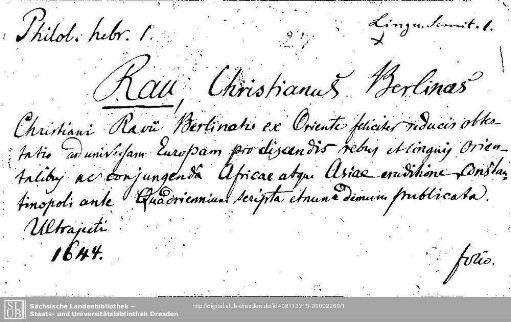 Philol. hebr. 1.
Lingu. Semit. 1.
Rau, Christianus Berlinas
Christiani Ravii Berlinatis ex Oriente feliciter reducis obtes-
tatio ad universam Europam pro discendis rebus et linguis Orien-
talibus ac conjungenda Africae atque Asiae eruditione Constan-
tinopoli ante Quadriennium scripta et nunc demum publicata.
Ultrajecti
1644.
folio.
Sächsische Landesbibliothek –
Staats- und Universitätsbibliothek Dresden